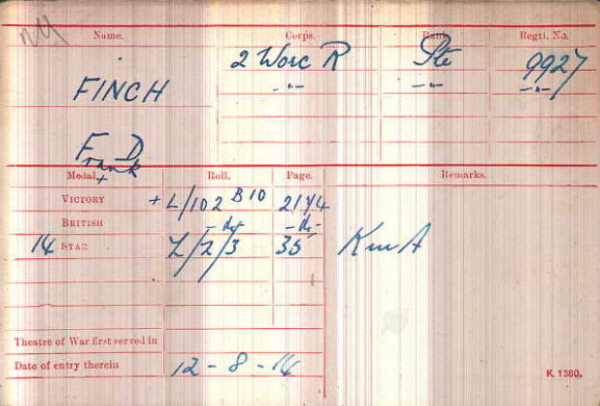 Name. Corps. Rank Regtl. No.
FINCH 2 Worc R Pte 9927
-"- -"- -"-
F D
Frank
Medal. Roll. Page. Remarks.
VICTORY + L/102 B10 2174
BRITISH -do- -do-
14 STAR L/2/3 35 K in A
Theatre of War first served in
Date of entry therein 12-8-14
K. 1380.